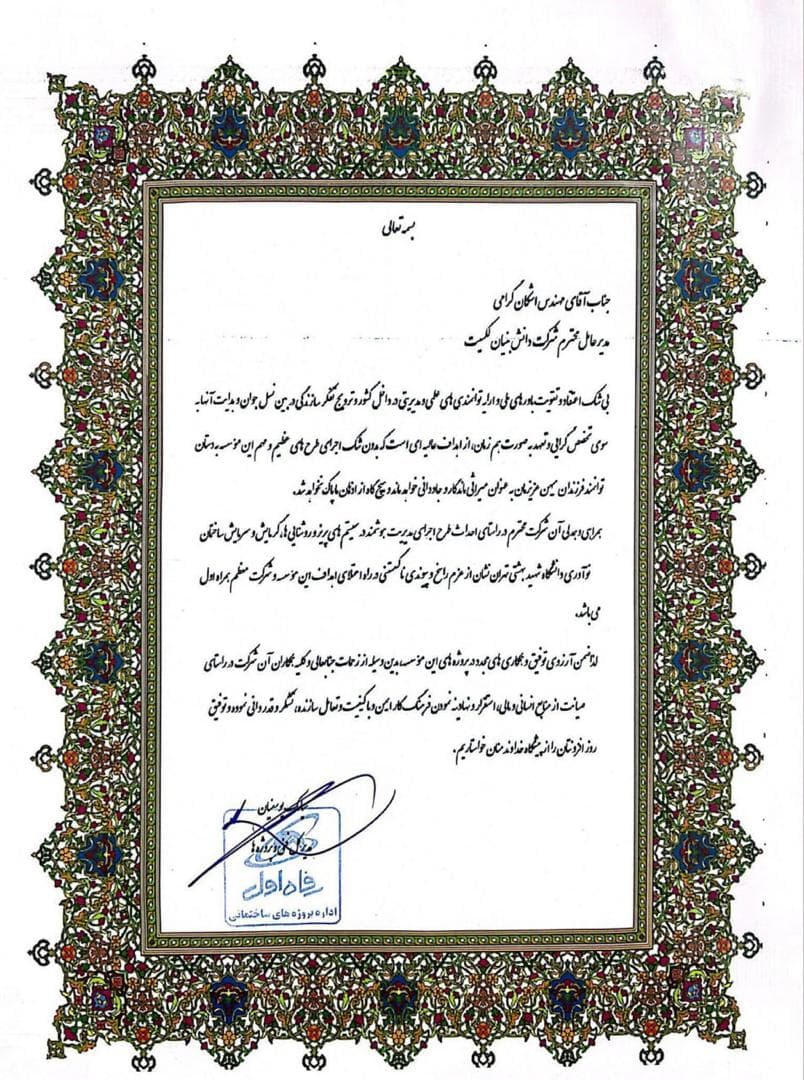 بسمه تعالی
جناب آقای مهندس اشکان گرامی
مدیر عامل محترم شرکت دانش بنیان کلمیت
بی شک اعتقاد و تقویت باورهای ملی و ارایه توانمندی های علمی و مدیریتی در داخل کشور و ترویج تفکر سازندگی در بین نسل جوان و هدایت آنها به
سوی تخصص گرایی و تعهد به صورت هم زمان، از اهداف عالیه ای است که بدون شک اجرای طرح های عظیم و مهم این مؤسسه به دستان
توانمند فرزندان میهن عزیزمان به عنوان میراثی ماندگار و جاودانی خواهد ماند و هیچ گاه از اذهان ما پاک نخواهد شد.
همراهی و همدلی آن شرکت محترم در راستای احداث طرح اجرای مدیریت هوشمند در سیستم های پریز و روشنایی ها، گرمایش و سرمایش ساختمان
نوآوری دانشگاه شهید بهشتی تهران نشان از عزم راسخ و پیوندی ناگسستنی در راه اعتلای اهداف این مؤسسه و شرکت معظم همراه اول
می باشد.
لذا ضمن آرزوی توفیق و همکاری های مجدد در پروژه های این مؤسسه، بدین وسیله از زحمات جنابعالی و کلیه همکاران آن شرکت در راستای
صیانت از منابع انسانی و مالی، استقرار و نهادینه نمودن فرهنگ کار ایمن و با کیفیت و تعامل سازنده، تشکر و قدردانی نموده و توفیق
روز افزونتان را از پیشگاه خداوند منان خواستاریم.
یوسفیان
مدیر کل فنی و پروژه ها
رفاه اول
اداره پروژه های ساختمانی